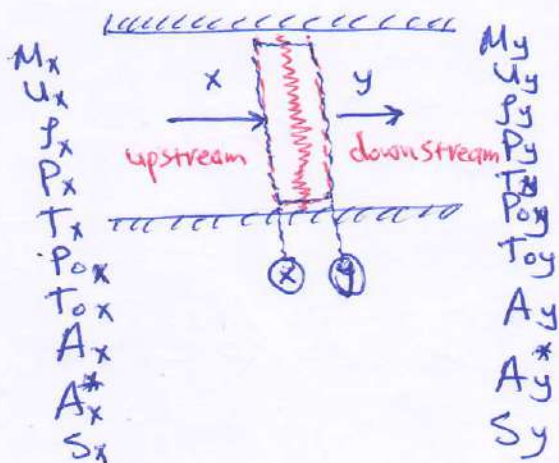 Mx
ux
ρx
Px
Tx
Pox
Tox
Ax
Ax*
Sx
x y
upstream downstream
x y
My
uy
ρy
Py
Ty
Poy
Toy
Ay
Ay*
Sy